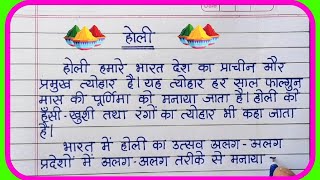 होली
होली हमारे भारत देश का प्राचीन और
प्रमुख त्योहार है। यह त्योहार हर साल फाल्गुन
मास की पूर्णिमा को मनाया जाता है। होली को
हँसी-खुशी तथा रंगों का त्योहार भी कहा जाता
है।
भारत में होली का उत्सव अलग-अलग
प्रदेशों में अलग-अलग तरीके से मनाया